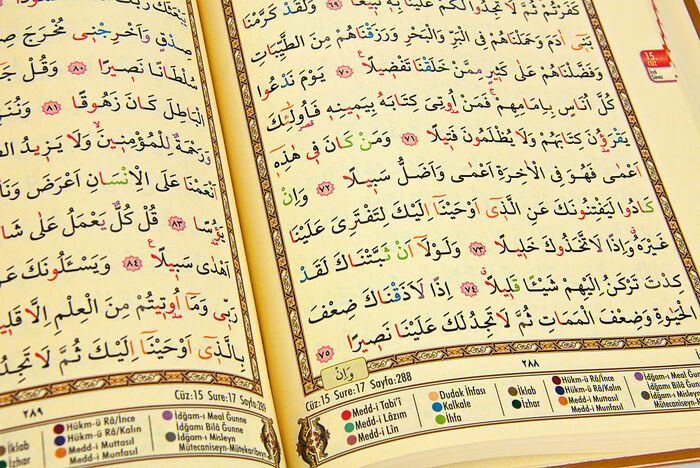 كَفَرْتُمْ ثُمَّ لَا تَجِدُوا لَكُمْ عَلَيْنَا بِهٖ تَبٖيعًا ﴿٦٩﴾ وَلَقَدْ كَرَّمْنَا
بَنٖٓى اٰدَمَ وَحَمَلْنَاهُمْ فِى الْبَرِّ وَالْبَحْرِ وَرَزَقْنَاهُمْ مِنَ الطَّيِّبَاتِ
وَفَضَّلْنَاهُمْ عَلٰى كَثٖيرٍ مِمَّنْ خَلَقْنَا تَفْضٖيلًا ﴿٧٠﴾ يَوْمَ نَدْعُوا
كُلَّ اُنَاسٍ بِاِمَامِهِمْ فَمَنْ اُوتِىَ كِتَابَهُ بِيَمٖينِهٖ فَاُولٰٓئِكَ
يَقْرَؤُنَ كِتَابَهُمْ وَلَا يُظْلَمُونَ فَتٖيلًا ﴿٧١﴾ وَمَنْ كَانَ فٖى هٰذِهٖٓ
اَعْمٰى فَهُوَ فِى الْاٰخِرَةِ اَعْمٰى وَاَضَلُّ سَبٖيلًا ﴿٧٢﴾ وَاِنْ
كَادُوا لَيَفْتِنُونَكَ عَنِ الَّذٖٓى اَوْحَيْنَٓا اِلَيْكَ لِتَفْتَرِىَ عَلَيْنَا
غَيْرَهُ وَاِذًا لَاتَّخَذُوكَ خَلٖيلًا ﴿٧٣﴾ وَلَوْلَٓا اَنْ ثَبَّتْنَاكَ لَقَدْ
كِدْتَ تَرْكَنُ اِلَيْهِمْ شَيْـًٔا قَلٖيلًا ﴿٧٤﴾ اِذًا لَاَذَقْنَاكَ ضِعْفَ
الْحَيٰوةِ وَضِعْفَ الْمَمَاتِ ثُمَّ لَا تَجِدُ لَكَ عَلَيْنَا نَصٖيرًا ﴿٧٥﴾
وَاِنْ
٢٨٨
15.
CÜZ
Cüz:15 Sure:17 Sayfa:288
Medd-i Tabi'î
Medd-i Lâzım
Medd-i Lîn
Dudak İhfası
Kalkale
İhfa
İklab
İzhar
Hükm-ü Râ/İnce
Hükm-ü Râ/Kalın
Medd-i Muttasıl
Medd-i Munfasıl
İdğam-ı Meal Ğunne
İdğamı Bilâ Ğunne
İdğam-ı Misleyn
صِدْقٍ وَاَخْرِجْنٖى مُخْرَجَ
سُلْطَانًا نَصٖيرًا ﴿٨٠﴾ وَقُلْ
الْبَاطِلَ كَانَ زَهُوقًا ﴿٨١﴾
وَرَحْمَةٌ لِلْمُؤْمِنٖينَ وَلَا يَزٖيدُ
اَنْعَمْنَا عَلَى الْاِنْسَانِ اَعْرَضَ
يَؤُسًا ﴿٨٣﴾ قُلْ كُلٌّ يَعْمَلُ عَلٰى
اَهْدٰى سَبٖيلًا ﴿٨٤﴾ وَيَسْـَٔلُونَكَ
رَبّٖى وَمَٓا اُوتٖيتُمْ مِنَ الْعِلْمِ اِلَّا
بِالَّذٖٓى اَوْحَيْنَٓا اِلَيْكَ ثُمَّ لَا تَجِدُ
٢٨٩
Cüz:15 Sure:17
İklab
İzhar
Hükm-ü Râ/İnce
Hükm-ü Râ/Kalın
Medd-i Muttasıl
Medd-i Munfasıl
İdğam-ı Meal Ğunne
İdğamı Bilâ Ğunne
İdğam-ı Misleyn
Mütecaniseyn-Mütekaribeyn